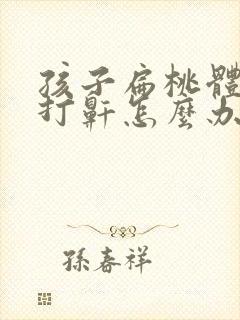 孩子扁桃體
打鼾怎麼办
孫春祥